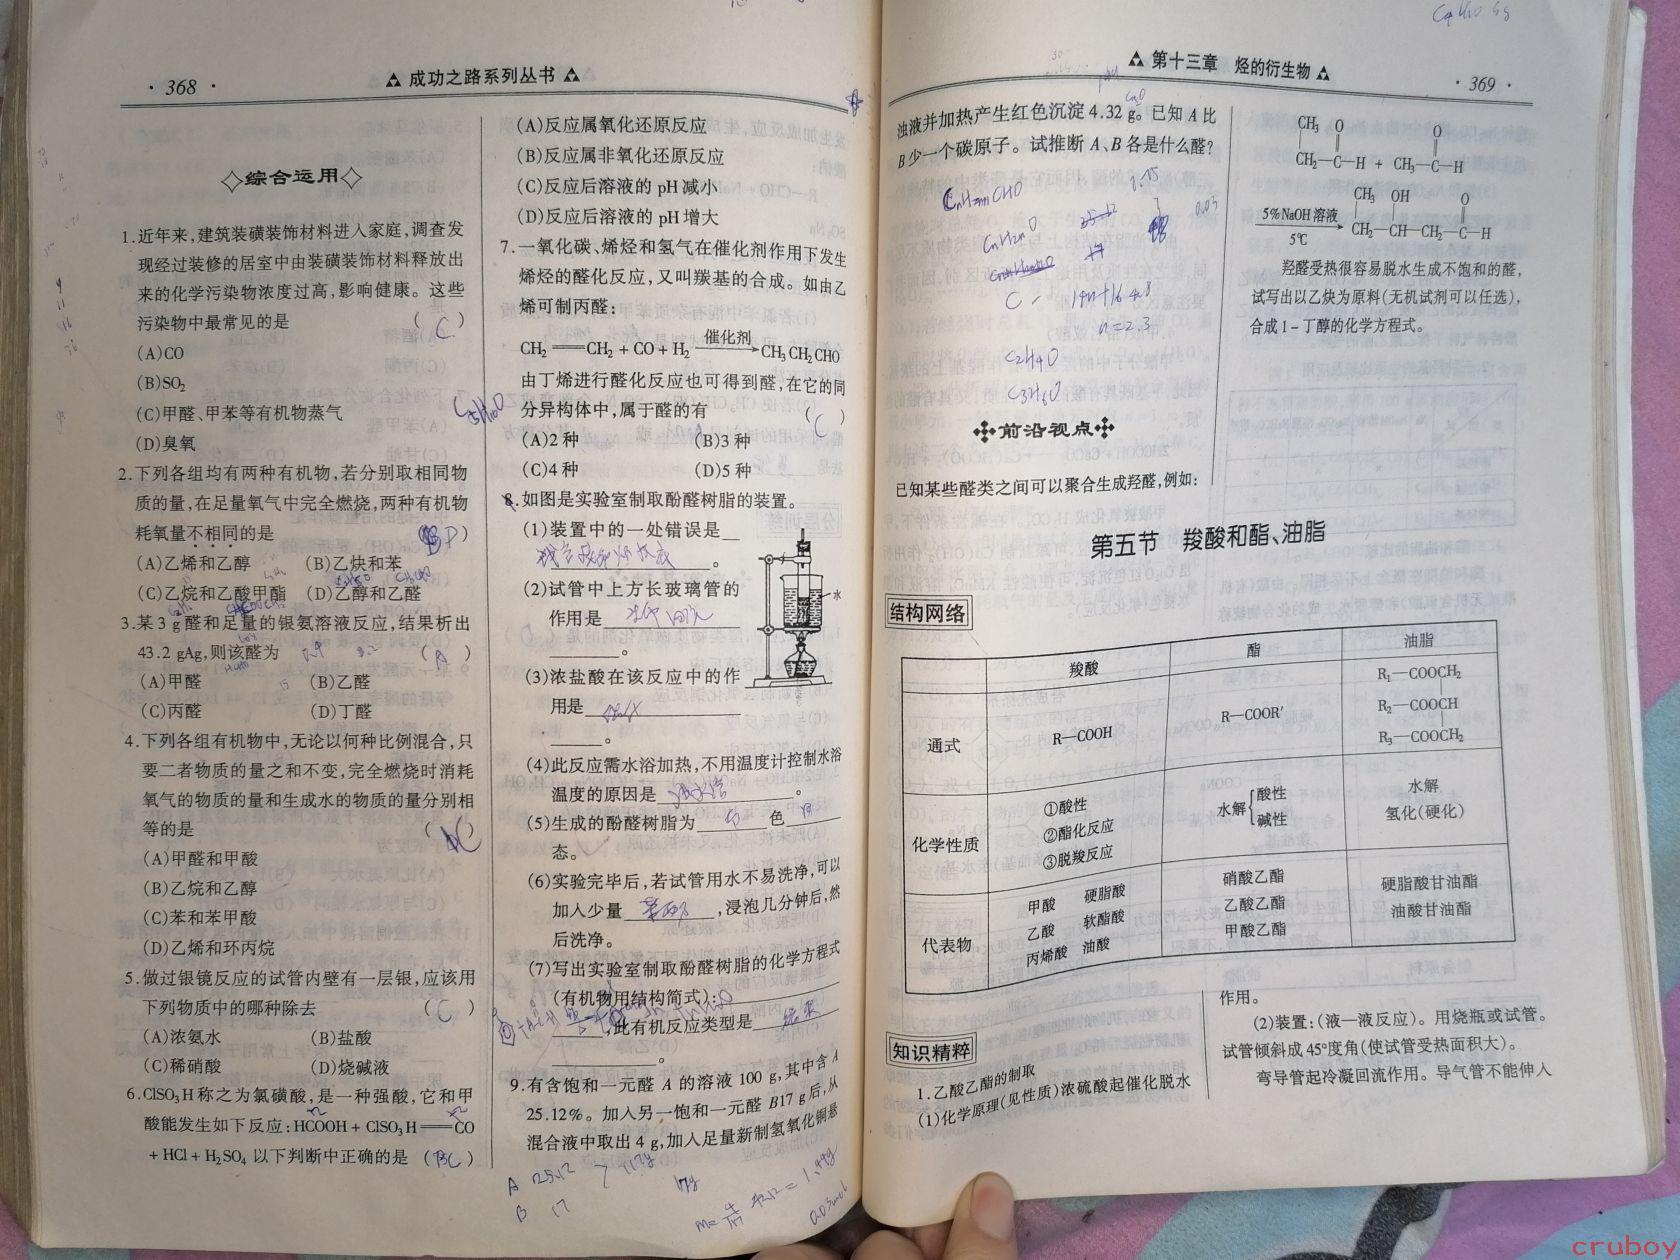 · 368 ·
成功之路系列丛书
综合运用
1.近年来,建筑装磺装饰材料进入家庭,调查发
现经过装修的居室中由装磺装饰材料释放出
来的化学污染物浓度过高,影响健康。这些
污染物中最常见的是 ( C )
(A)CO
(B)SO₂
(C)甲醛、甲苯等有机物蒸气
(D)臭氧
2.下列各组均有两种有机物,若分别取相同物
质的量,在足量氧气中完全燃烧,两种有机物
耗氧量不相同的是 ( D )
(A)乙烯和乙醇 (B)乙炔和苯
(C)乙烷和乙酸甲酯 (D)乙醇和乙醛
3.某 3 g 醛和足量的银氨溶液反应,结果析出
43.2 gAg,则该醛为 ( A )
(A)甲醛 (B)乙醛
(C)丙醛 (D)丁醛
4.下列各组有机物中,无论以何种比例混合,只
要二者物质的量之和不变,完全燃烧时消耗
氧气的物质的量和生成水的物质的量分别相
等的是 ( C )
(A)甲醛和甲酸
(B)乙烷和乙醇
(C)苯和苯甲酸
(D)乙烯和环丙烷
5.做过银镜反应的试管内壁有一层银,应该用
下列物质中的哪种除去 ( C )
(A)浓氨水 (B)盐酸
(C)稀硝酸 (D)烧碱液
6.ClSO₃H 称之为氯磺酸,是一种强酸,它和甲
酸能发生如下反应:HCOOH + ClSO₃H══CO
+ HCl + H₂SO₄ 以下判断中正确的是 ( BC )
(A)反应属氧化还原反应
(B)反应属非氧化还原反应
(C)反应后溶液的 pH 减小
(D)反应后溶液的 pH 增大
7.一氧化碳、烯烃和氢气在催化剂作用下发生
烯烃的醛化反应,又叫羰基的合成。如由乙
烯可制丙醛:
CH₂══CH₂ + CO + H₂ 催化剂→ CH₃CH₂CHO
由丁烯进行醛化反应也可得到醛,在它的同
C₅H₁₀O
分异构体中,属于醛的有 ( C )
(A)2 种 (B)3 种
(C)4 种 (D)5 种
8.如图是实验室制取酚醛树脂的装置。
(1)装置中的一处错误是
。
(2)试管中上方长玻璃管的
作用是
。
水
(3)浓盐酸在该反应中的作
用是
。
(4)此反应需水浴加热,不用温度计控制水浴
温度的原因是 沸水浴 。
(5)生成的酚醛树脂为 白 色 固
态。
(6)实验完毕后,若试管用水不易洗净,可以
加入少量 ,浸泡几分钟后,然
后洗净。
(7)写出实验室制取酚醛树脂的化学方程式
(有机物用结构简式):
,此有机反应类型是 缩聚
。
9.有含饱和一元醛 A 的溶液 100 g,其中含 A
25.12%。加入另一饱和一元醛 B17 g 后,从
混合液中取出 4 g,加入足量新制氢氧化铜悬
A 25.12
B 17
117g
0.03mol
第十三章 烃的衍生物
· 369 ·
浊液并加热产生红色沉淀 4.32 g。已知 A 比
B 少一个碳原子。试推断 A、B 各是什么醛?
n=2.3
C₂H₄O
C₃H₆O
前沿视点
已知某些醛类之间可以聚合生成羟醛,例如:
CH₃ O O
CH₂—C—H + CH₃—C—H
CH₃ OH O
5%NaOH 溶液
5℃
CH₂—CH—CH₂—C—H
羟醛受热很容易脱水生成不饱和的醛,
试写出以乙炔为原料(无机试剂可以任选),
合成 1－丁醇的化学方程式。
第五节 羧酸和酯、油脂
结构网络
羧酸 酯 油脂
通式 R—COOH R—COOR′
R₁—COOCH₂
R₂—COOCH
R₃—COOCH₂
化学性质
①酸性
②酯化反应
③脱羧反应
水解{酸性
碱性
水解
氢化(硬化)
代表物
甲酸 硬脂酸
乙酸 软脂酸
丙烯酸 油酸
硝酸乙酯
乙酸乙酯
甲酸乙酯
硬脂酸甘油酯
油酸甘油酯
知识精粹
1.乙酸乙酯的制取
(1)化学原理(见性质)浓硫酸起催化脱水
作用。
(2)装置:(液—液反应)。用烧瓶或试管。
试管倾斜成 45°度角(使试管受热面积大)。
弯导管起冷凝回流作用。导气管不能伸人
cruboy